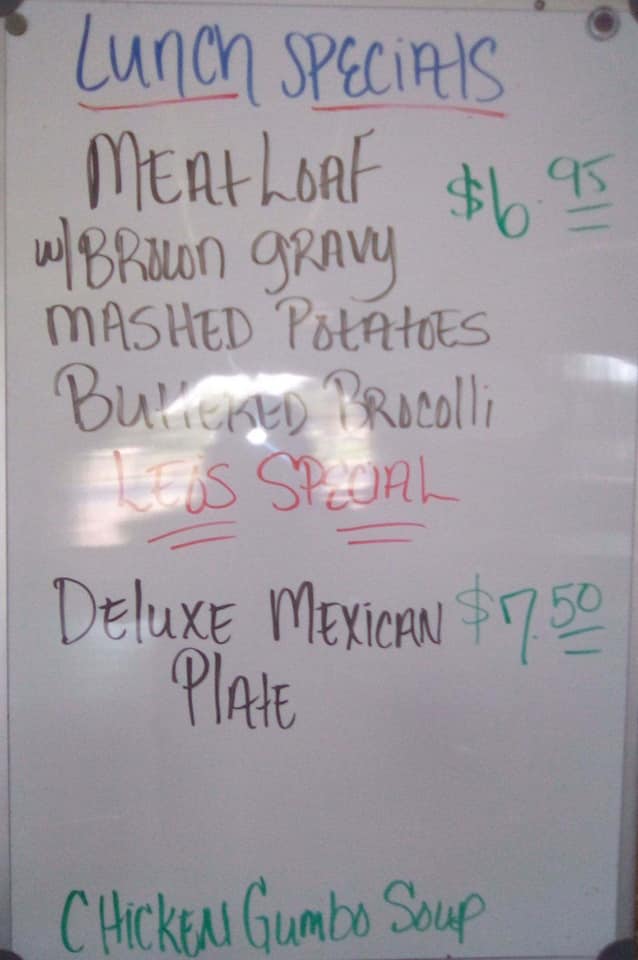 Lunch Specials
Meatloaf $6.95
w/Brown Gravy
Mashed Potatoes
Buttered Brocolli
Leos Special
Deluxe Mexican $7.50
Plate
Chicken Gumbo Soup